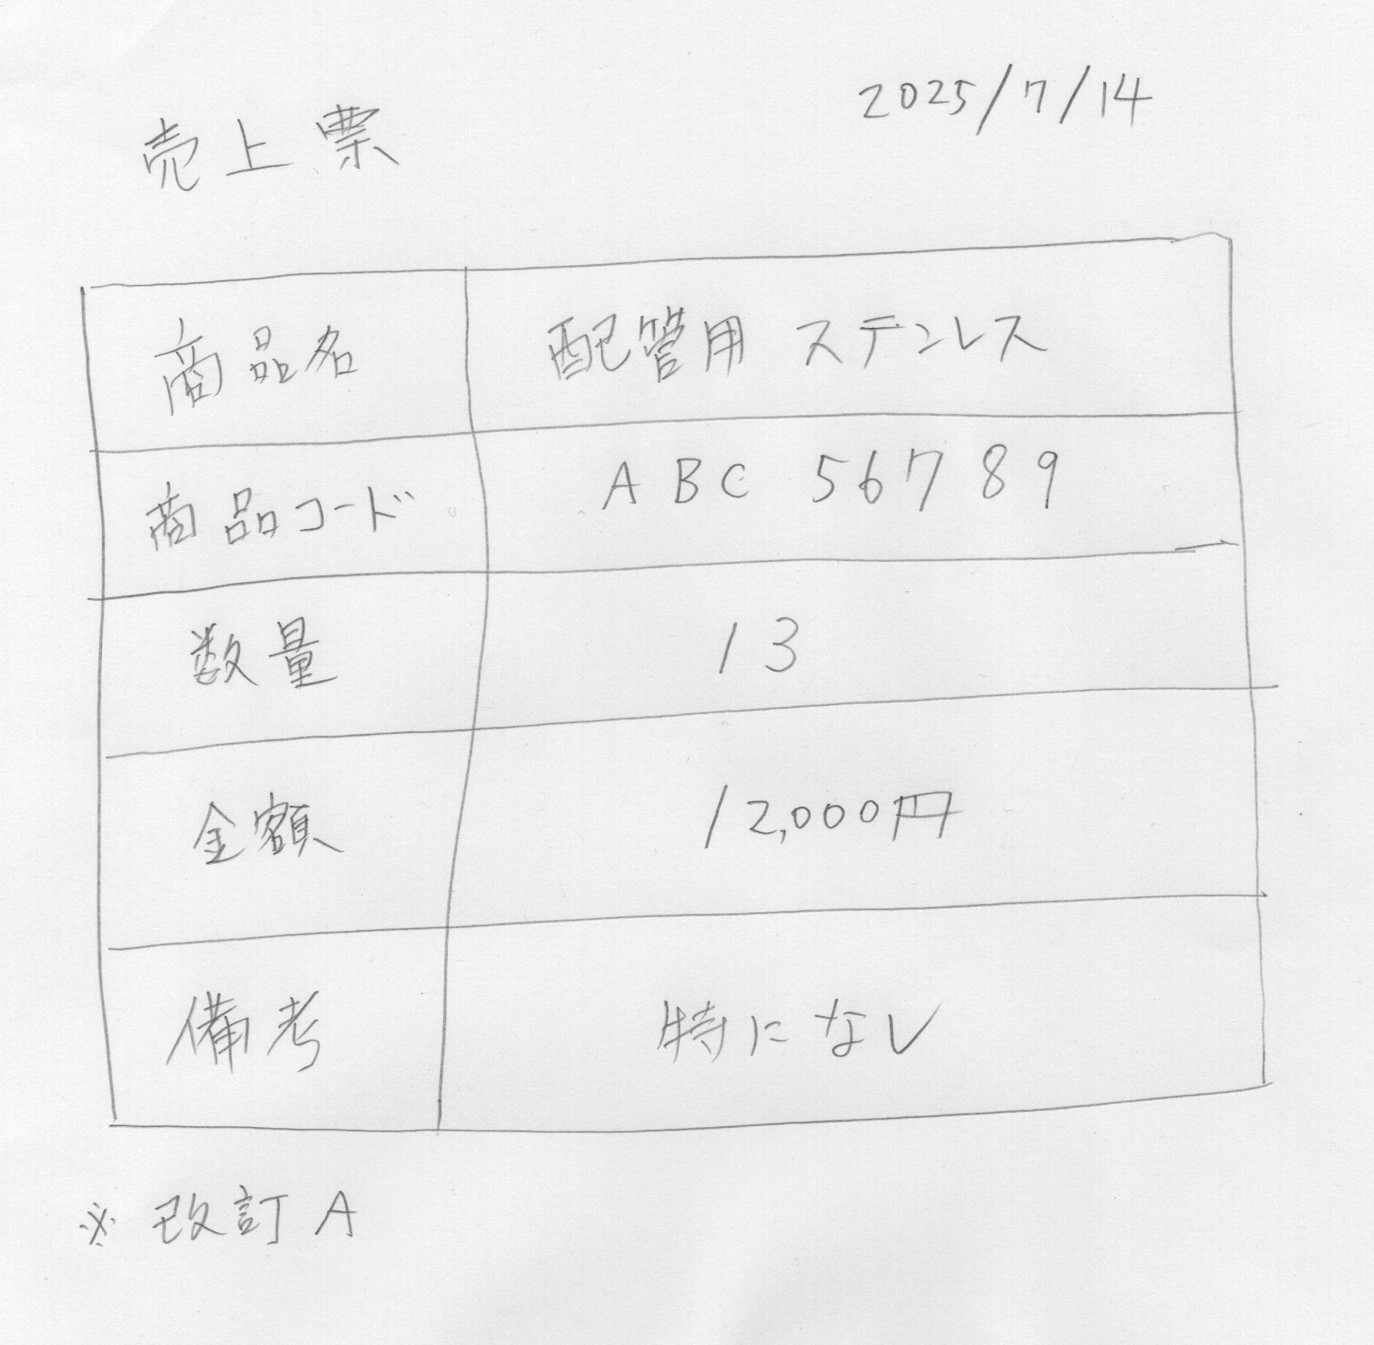 2025/7/14
売上票
商品名 配管用 ステンレス
商品コード ABC 56789
数量 13
金額 12,000円
備考 特になし
※ 改訂 A